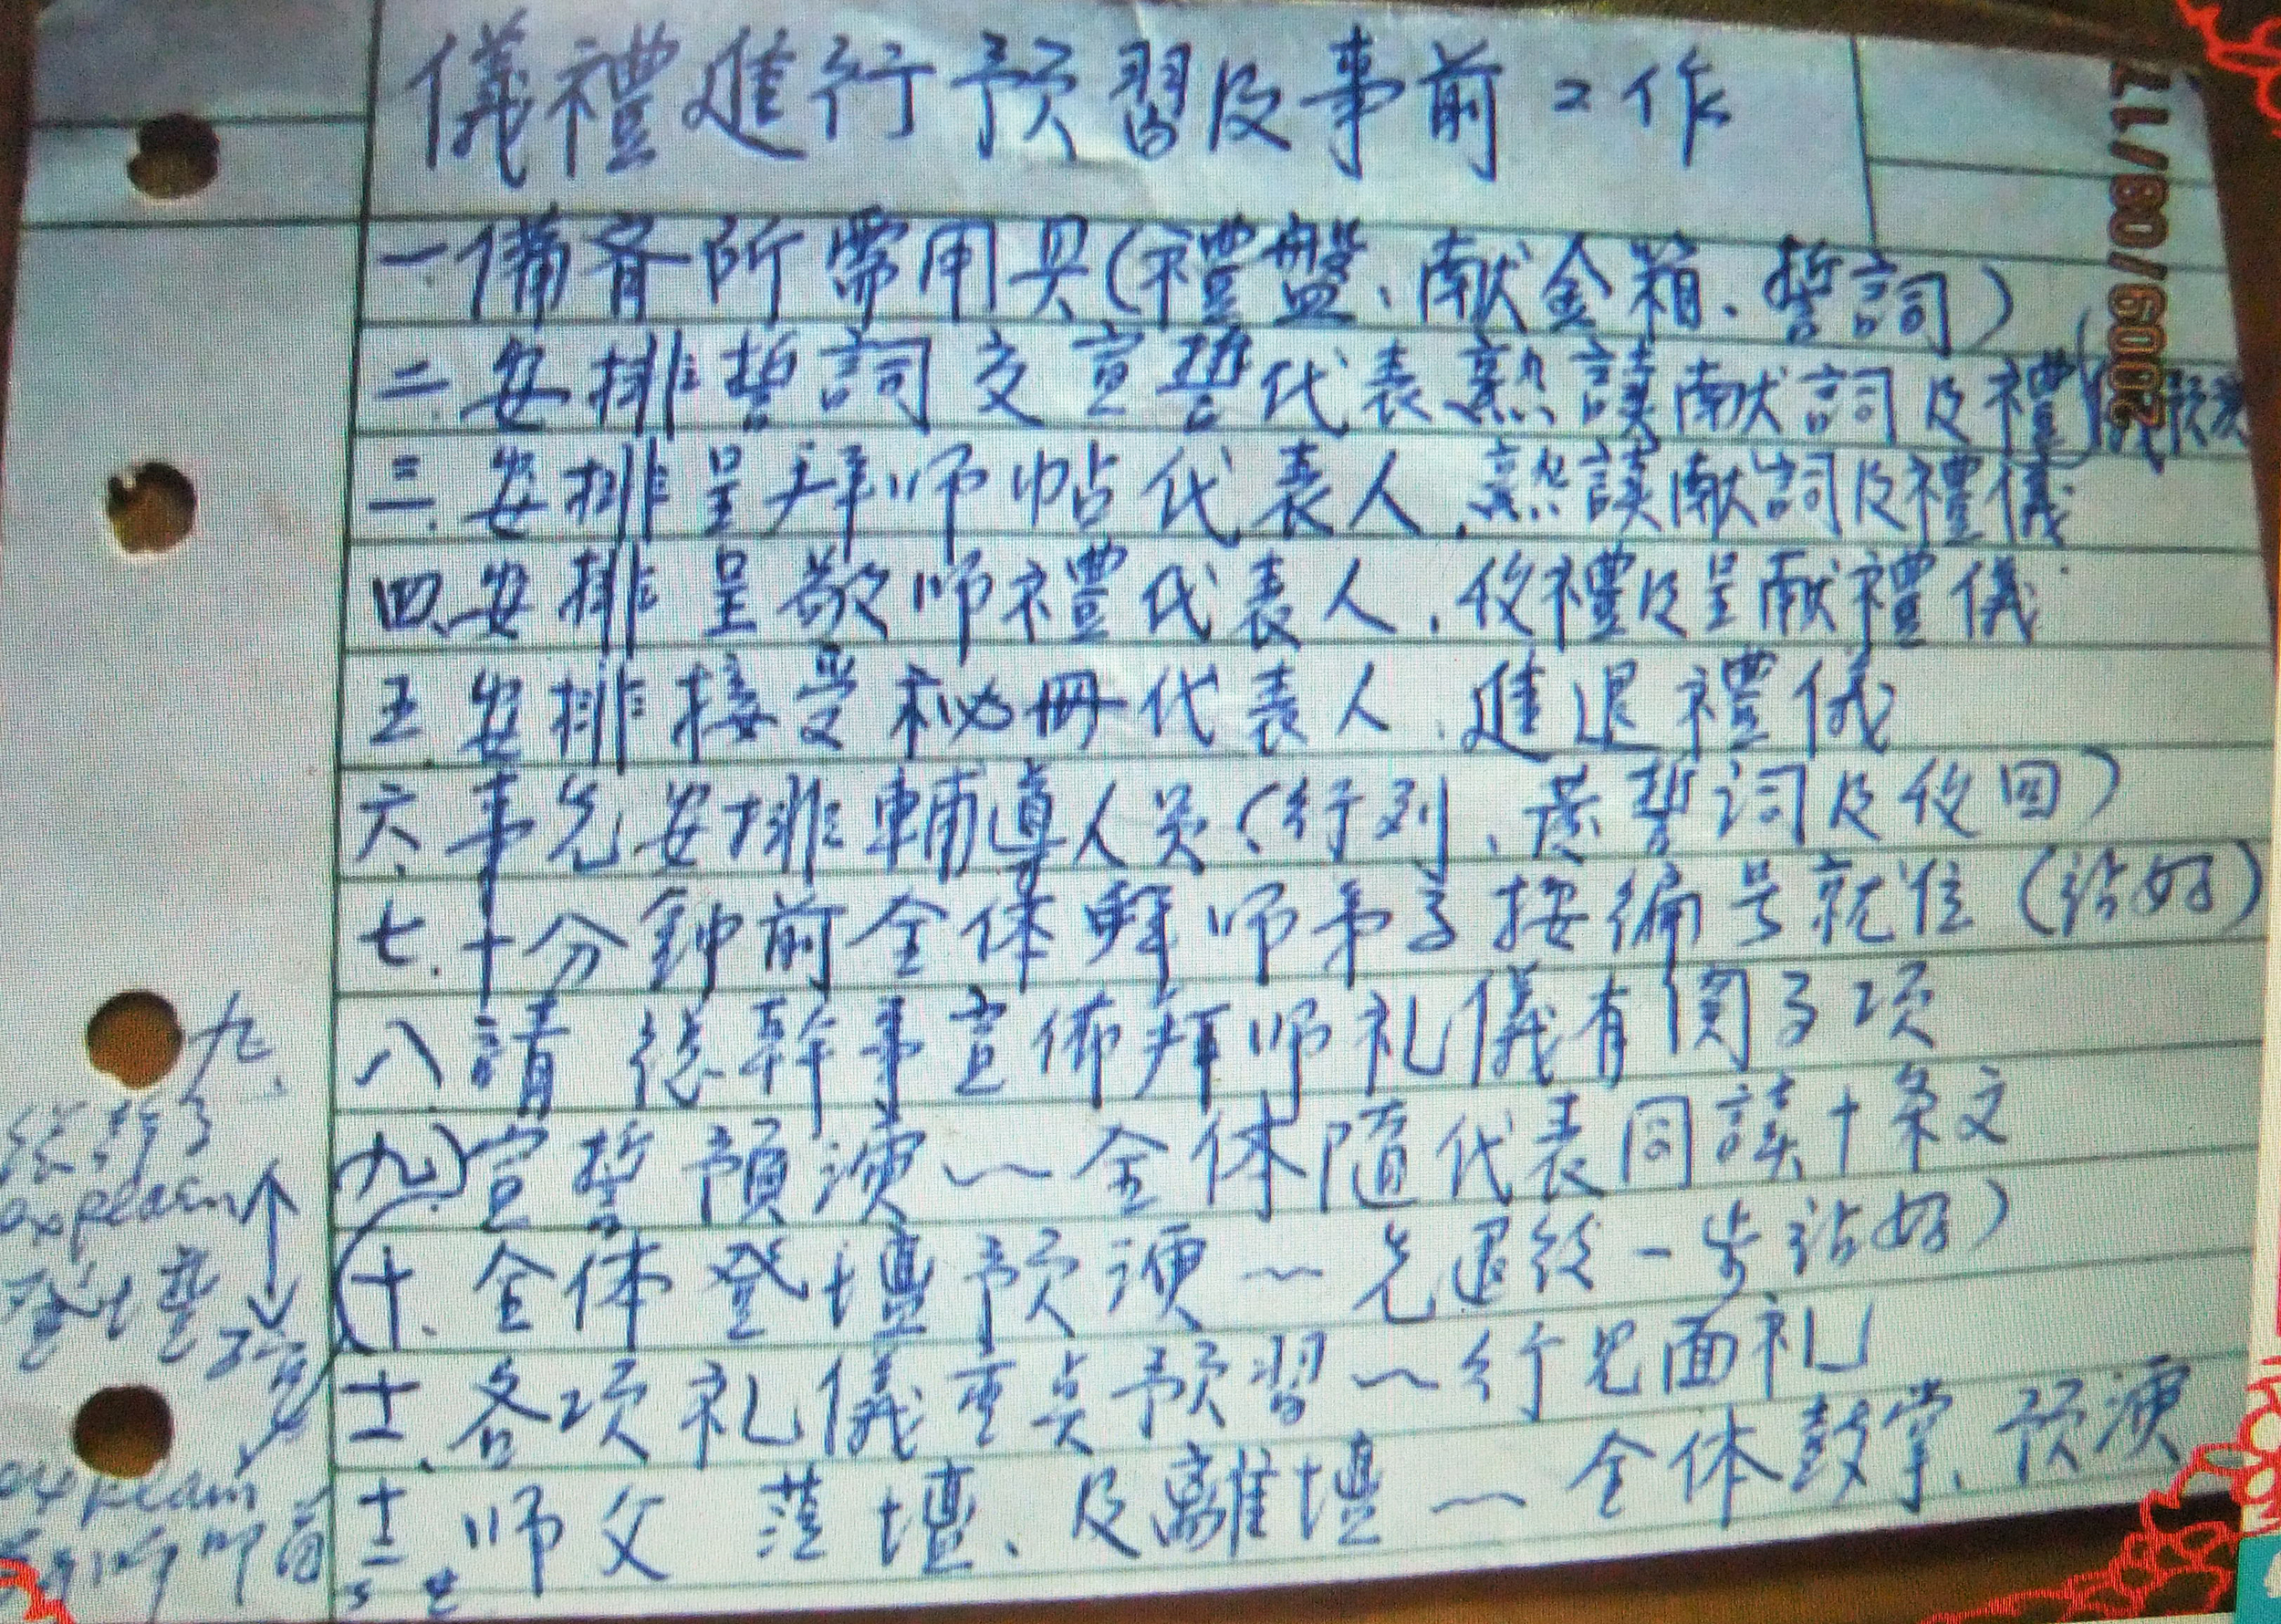 儀禮進行预習及事前工作
一.備齊所需用具(禮盤、献金箱、誓詞)
二.安排誓詞交宣誓代表熟讀献詞及禮儀
三.安排呈拜师帖代表人.熟讀献詞及禮儀
四.安排呈敬师禮代表人.收禮及呈献禮儀
五.安排接受秘冊代表人.進退禮儀
六.事先安排輔導人员(行列、發誓词及收回)
七.十分鐘前全体拜师弟子按編号就位(站好)
八.請總幹事宣佈拜师礼儀有関事项
九.宣誓預演~全体隨代表同讀十条文
十.全体登壇预演~先退後一步站好)
十一.各项礼儀重点预習~行見面礼
十二.师父蒞壇、及離壇~全体鼓掌.预演
九.
explain
explain
2009/08/17